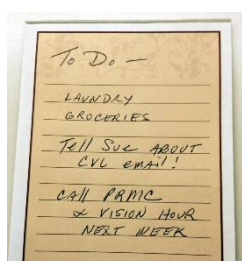 To Do –
LAUNDRY
GROCERIES
Tell Sue ABOUT
CVL email!
CAll PRMC
& VISION HOUR
NEXT WEEK